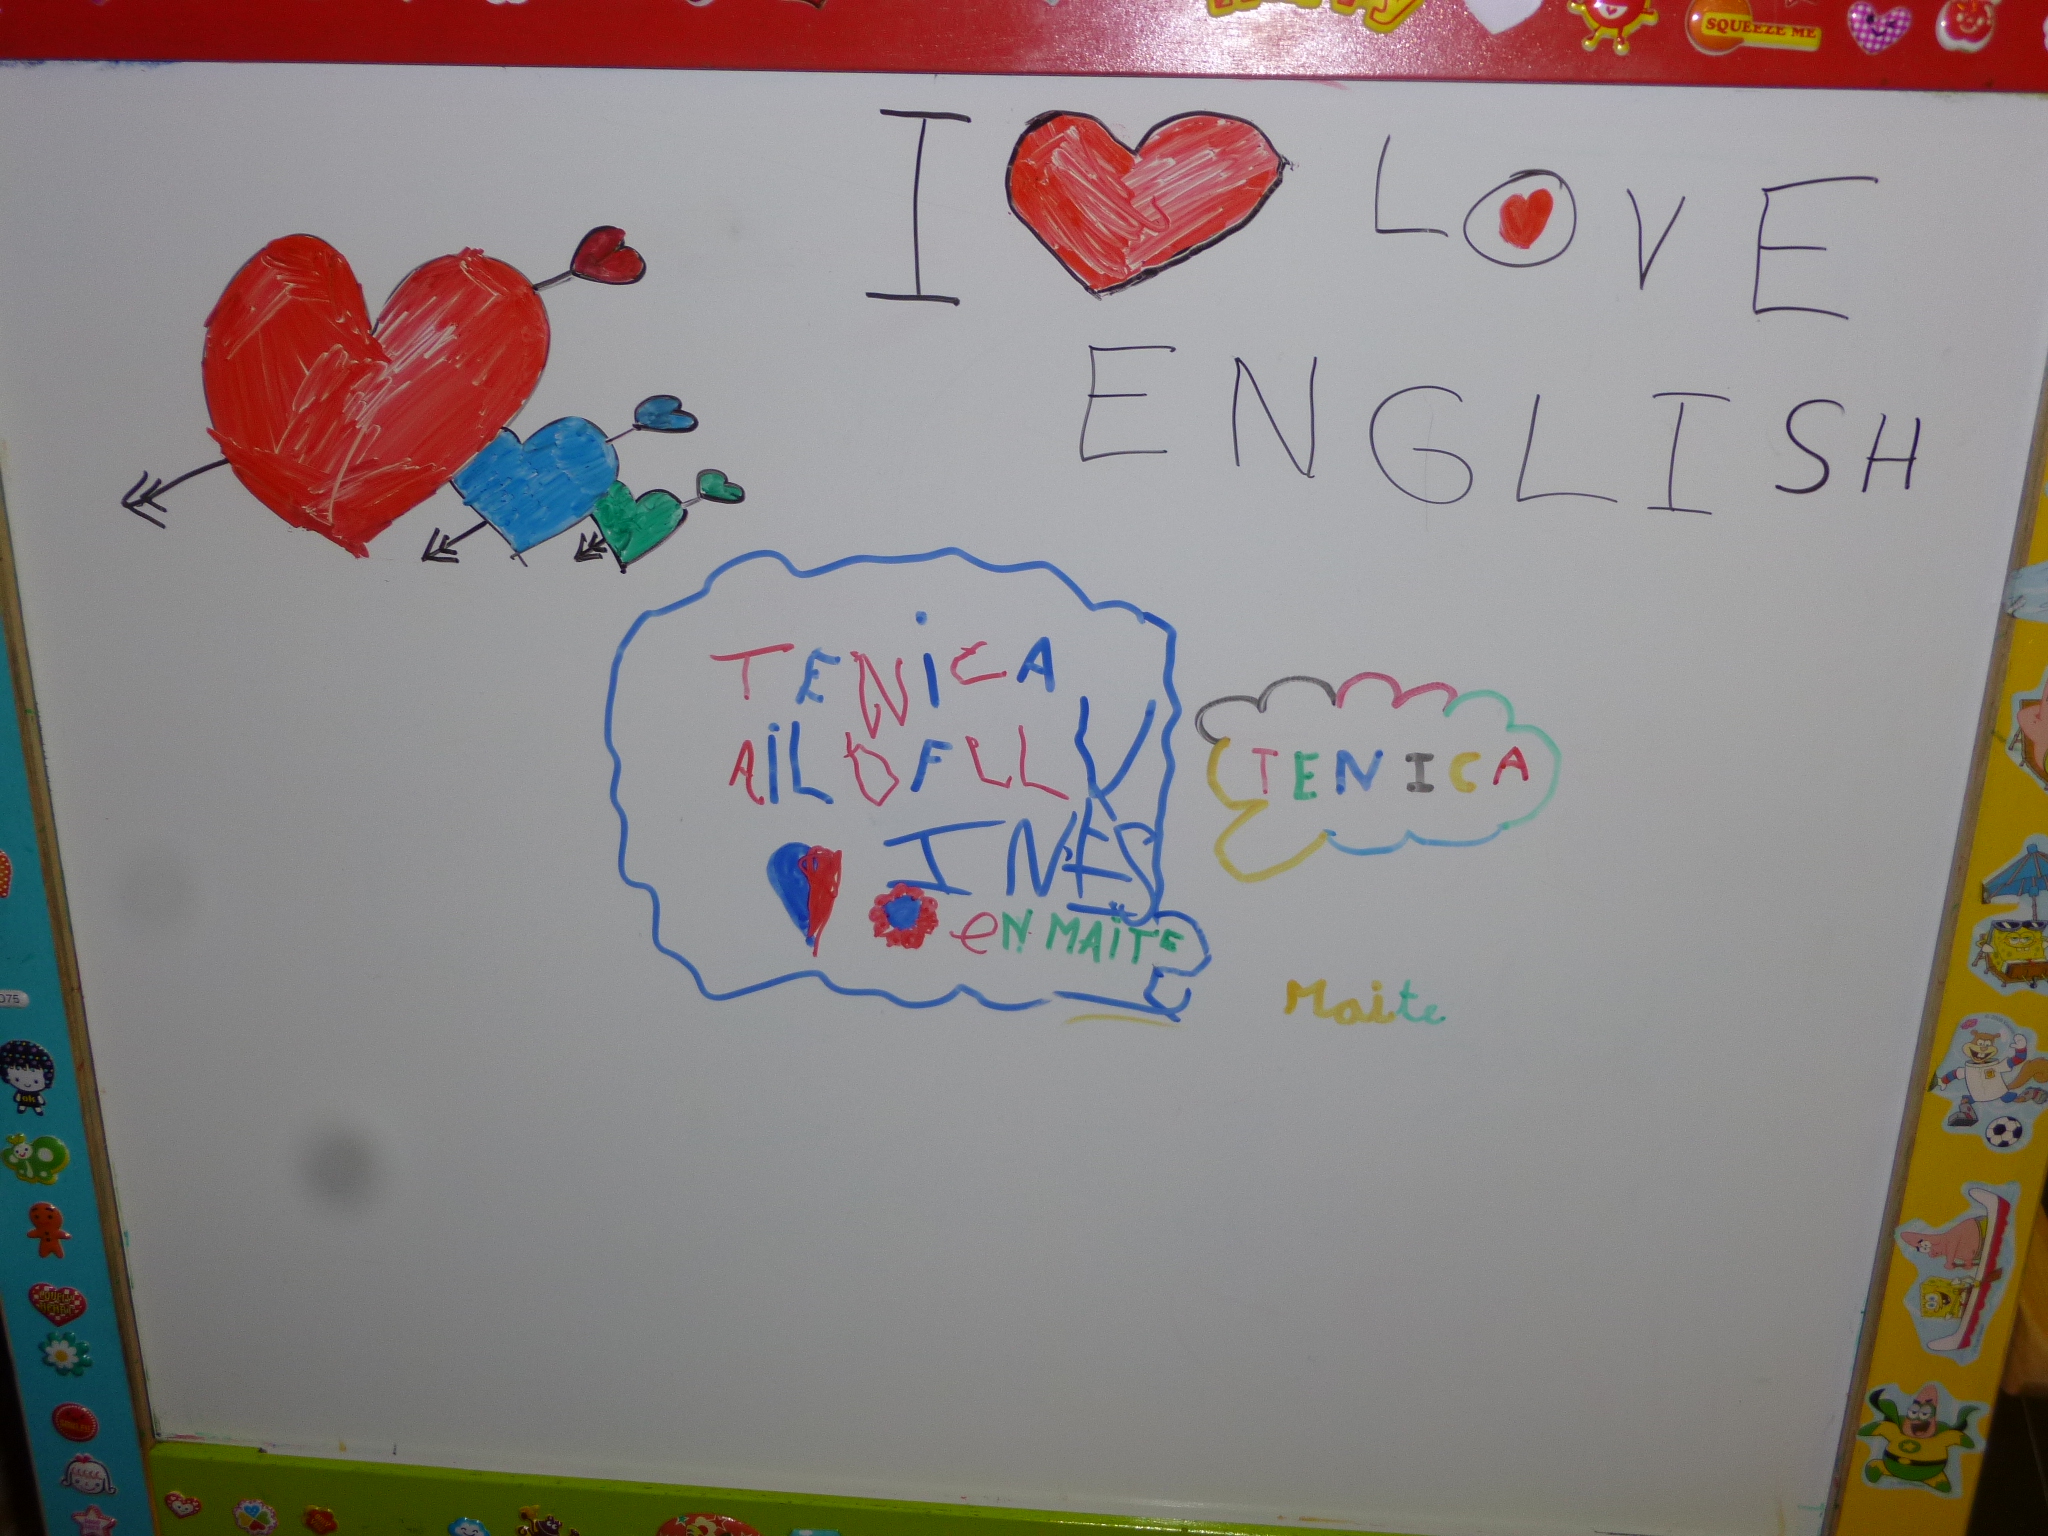 SQUEEZE ME
I LOVE
ENGLISH
TENiCA
AiLDFLLV
INES
eN MAiTE
TENICA
Maite